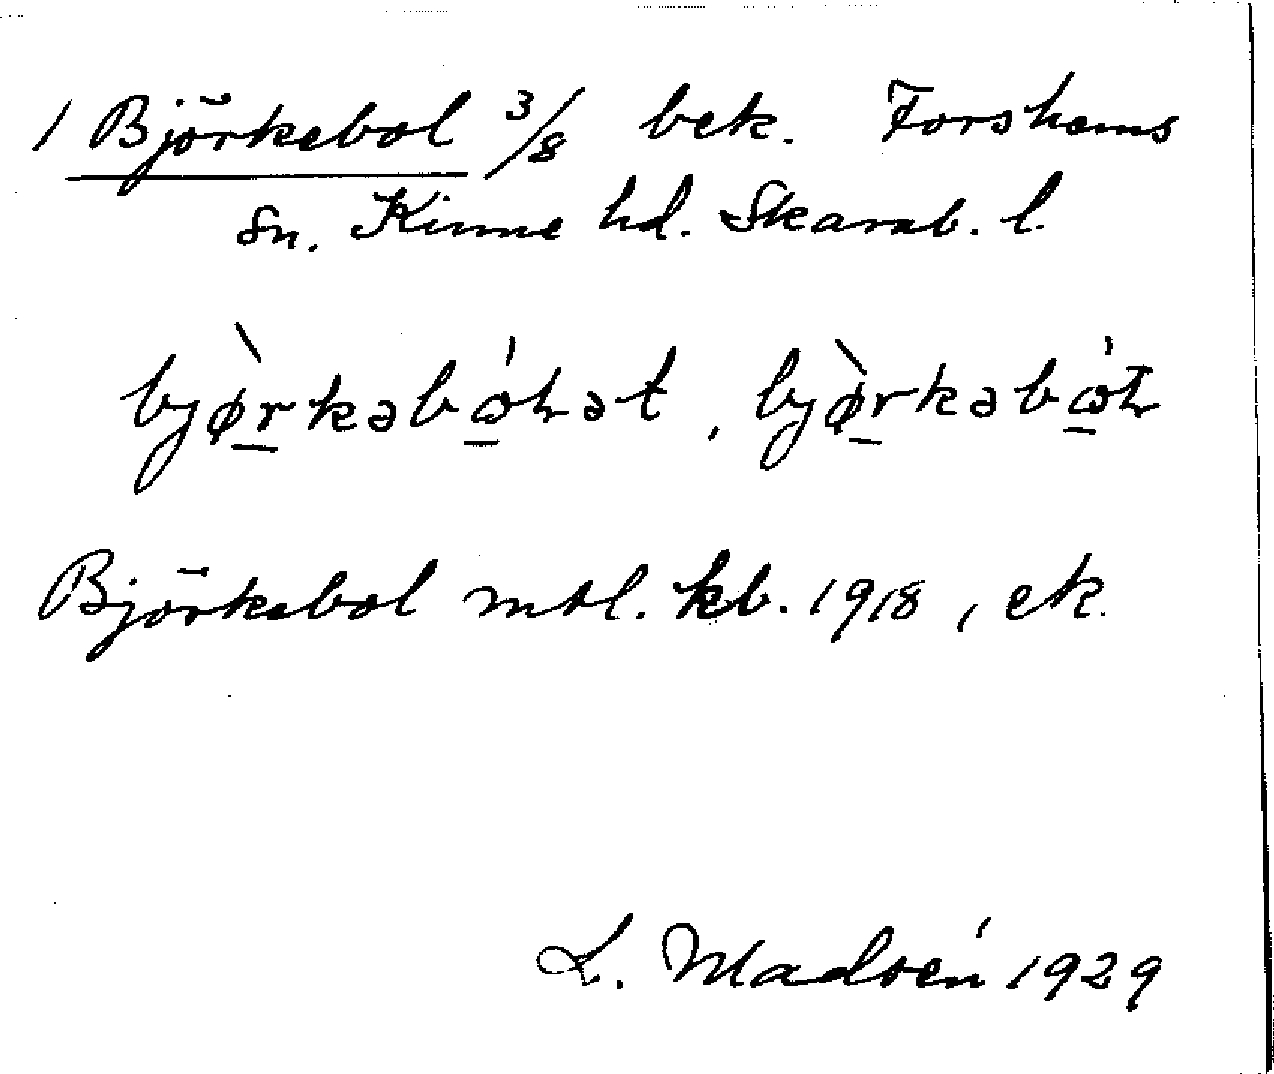 1 Björkebol 3/8 bek. Forshems
sn. Kinne hd. Skarab. l.
bjø̀rkəbɷ́ɫət, bjø̀rkəbɷ́ɫ
Björkebol mtl. kb. 1918, ek.
L. Madsén 1929